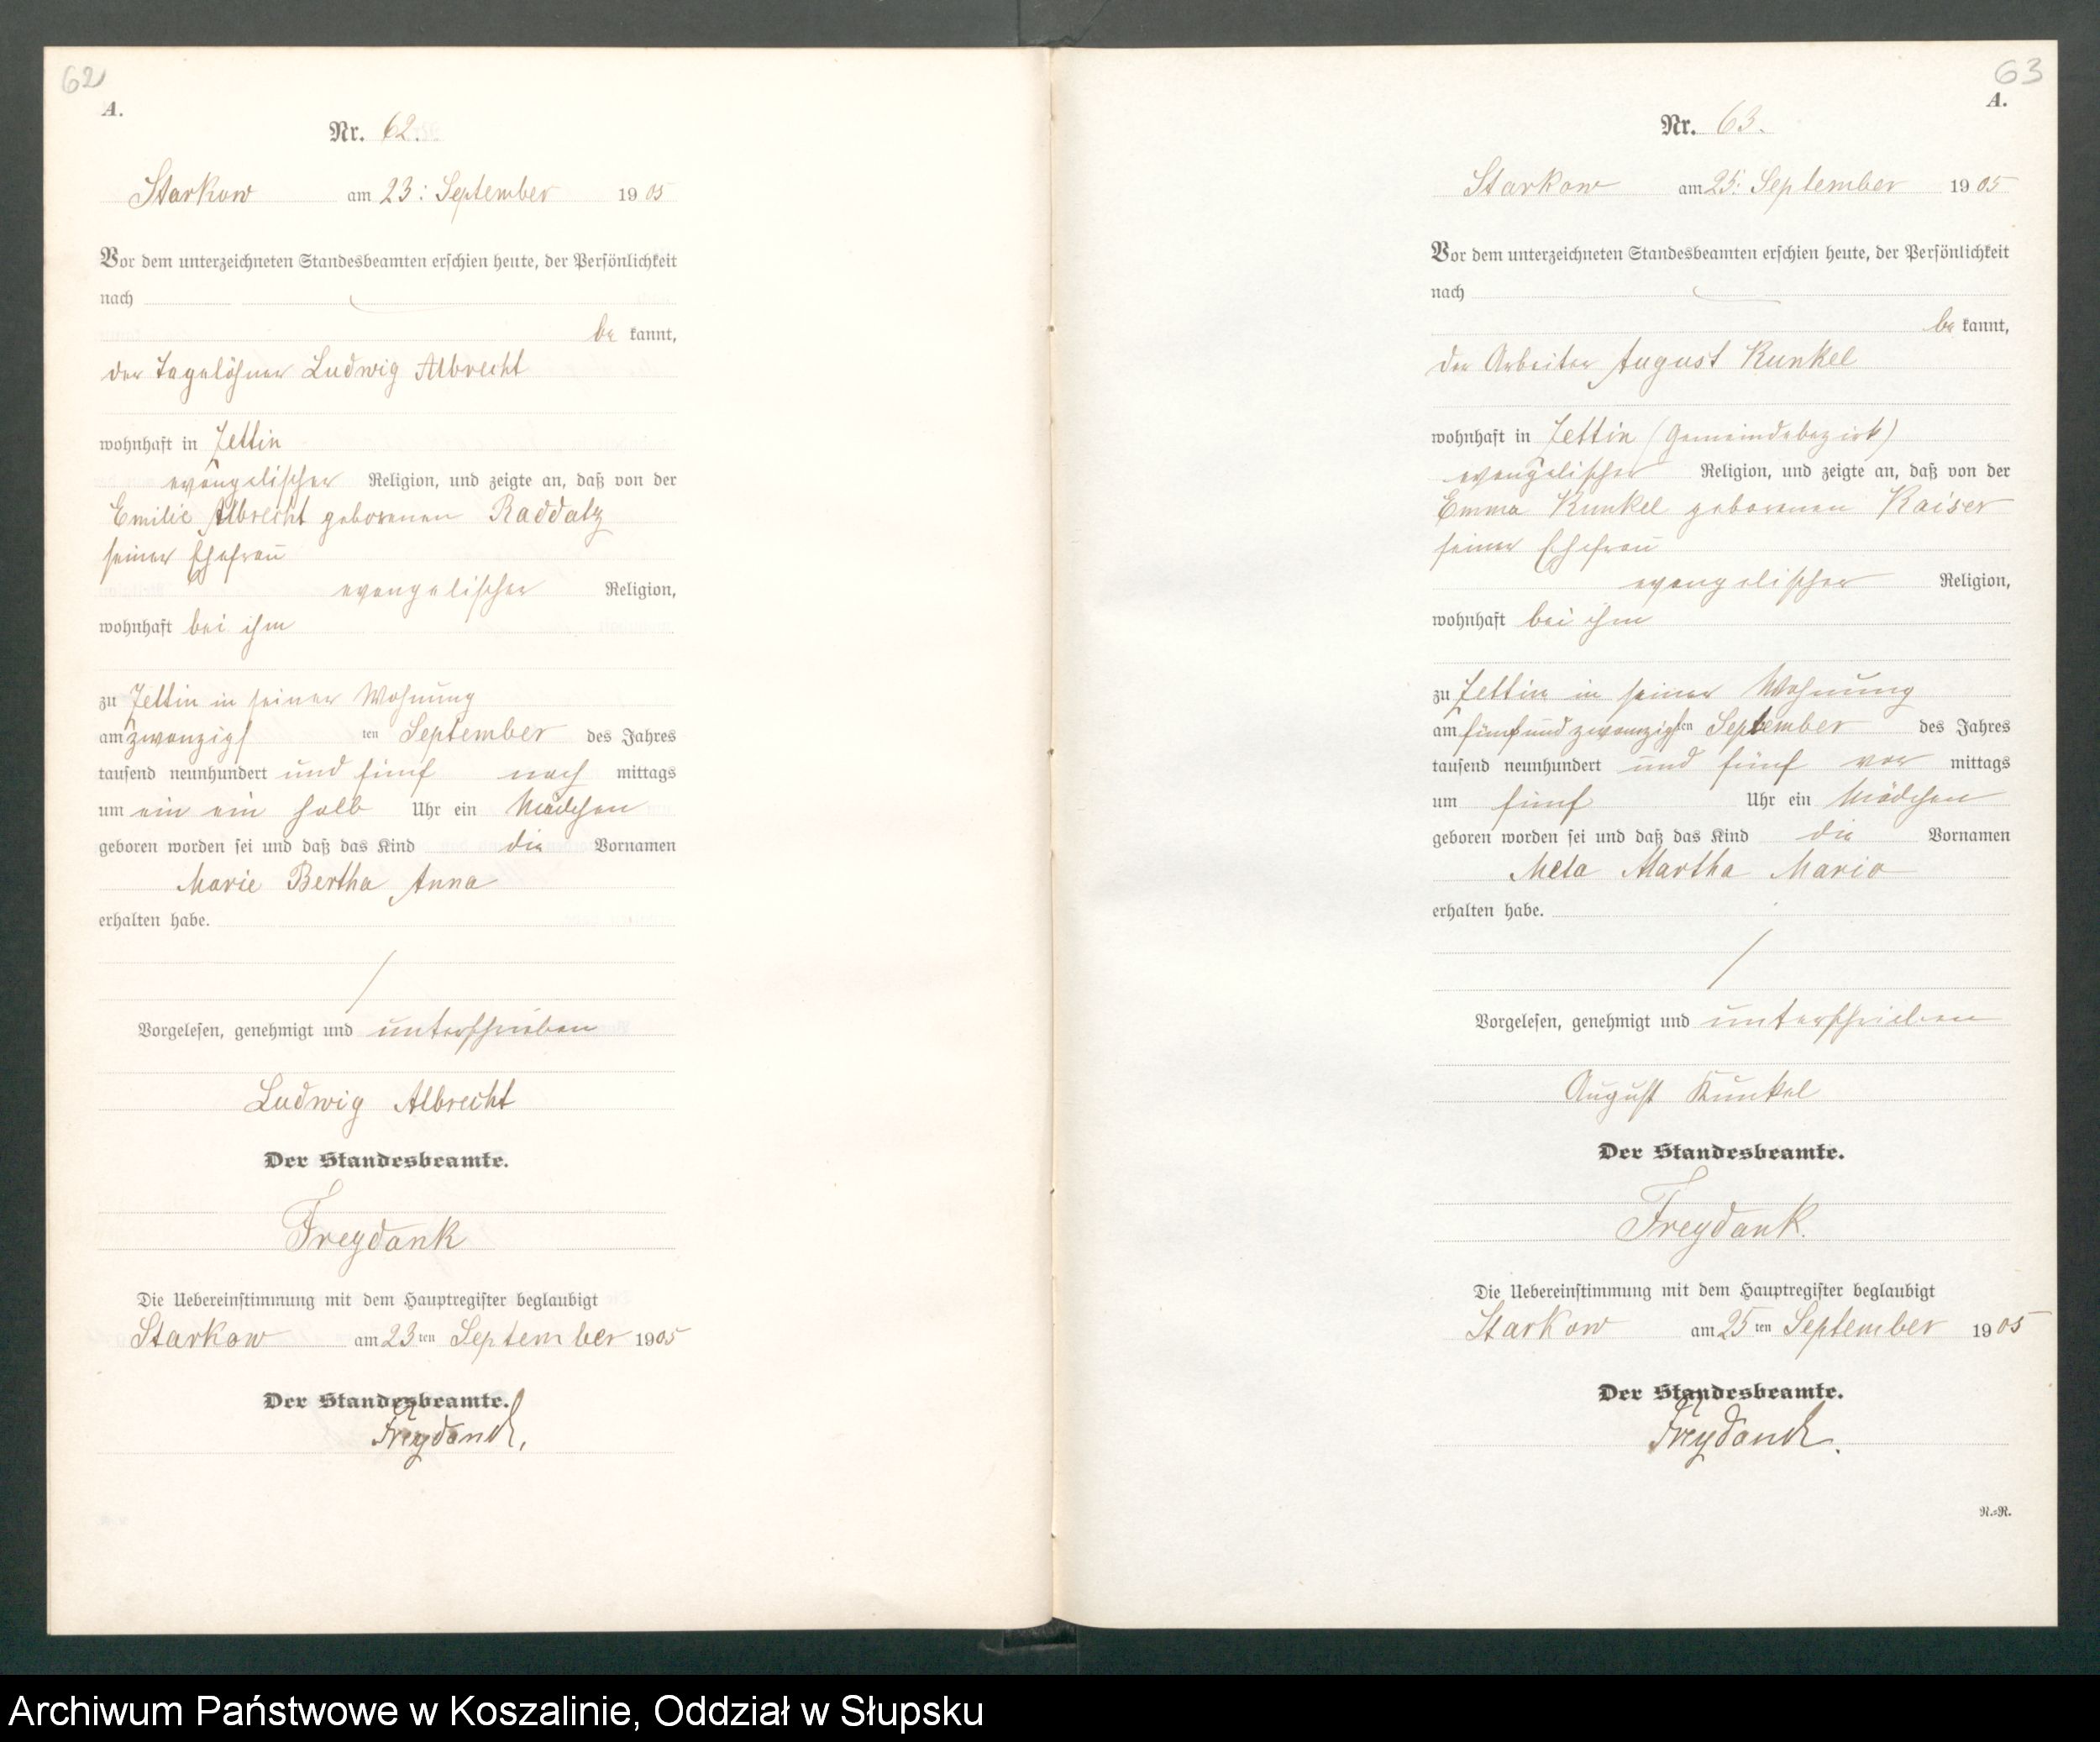 62
A.
Nr. 62.
Starkow am 23: September 1905
Vor dem unterzeichneten Standesbeamten erschien heute, der Persönlichkeit
nach
be kannt,
der Tagelöhner Ludwig Albrecht
wohnhaft in Zettin
evangelischer Religion, und zeigte an, daß von der
Emilie Albrecht geborenen Raddatz
seiner Ehefrau
evangelischer Religion,
wohnhaft bei ihm
zu Zettin in seiner Wohnung
am zwanzigsten September des Jahres
tausend neunhundert und fünf nach mittags
um ein ein halb Uhr ein Mädchen
geboren worden sei und daß das Kind die Vornamen
Marie Bertha Anna
erhalten habe.
Vorgelesen, genehmigt und unterschrieben
Ludwig Albrecht
Der Standesbeamte.
Freydank
Die Uebereinstimmung mit dem Hauptregister beglaubigt
Starkow am 23ten September 1905
Der Standesbeamte.
Freydank.
63
A.
Nr. 63.
Starkow am 25. September 1905
Vor dem unterzeichneten Standesbeamten erschien heute, der Persönlichkeit
nach
be kannt,
der Arbeiter August Kunkel
wohnhaft in Zettin (Gemeindebezirk)
evangelischer Religion, und zeigte an, daß von der
Emma Kunkel geborenen Kaiser
seiner Ehefrau
evangelischer Religion,
wohnhaft bei ihm
zu Zettin in seiner Wohnung
am fünfundzwanzigsten September des Jahres
tausend neunhundert und fünf vor mittags
um fünf Uhr ein Mädchen
geboren worden sei und daß das Kind die Vornamen
Meta Martha Maria
erhalten habe.
Vorgelesen, genehmigt und unterschrieben
August Kunkel
Der Standesbeamte.
Freydank.
Die Uebereinstimmung mit dem Hauptregister beglaubigt
Starkow am 25ten September 1905
Der Standesbeamte.
Freydank.
R.=R.
Archiwum Państwowe w Koszalinie, Oddział w Słupsku